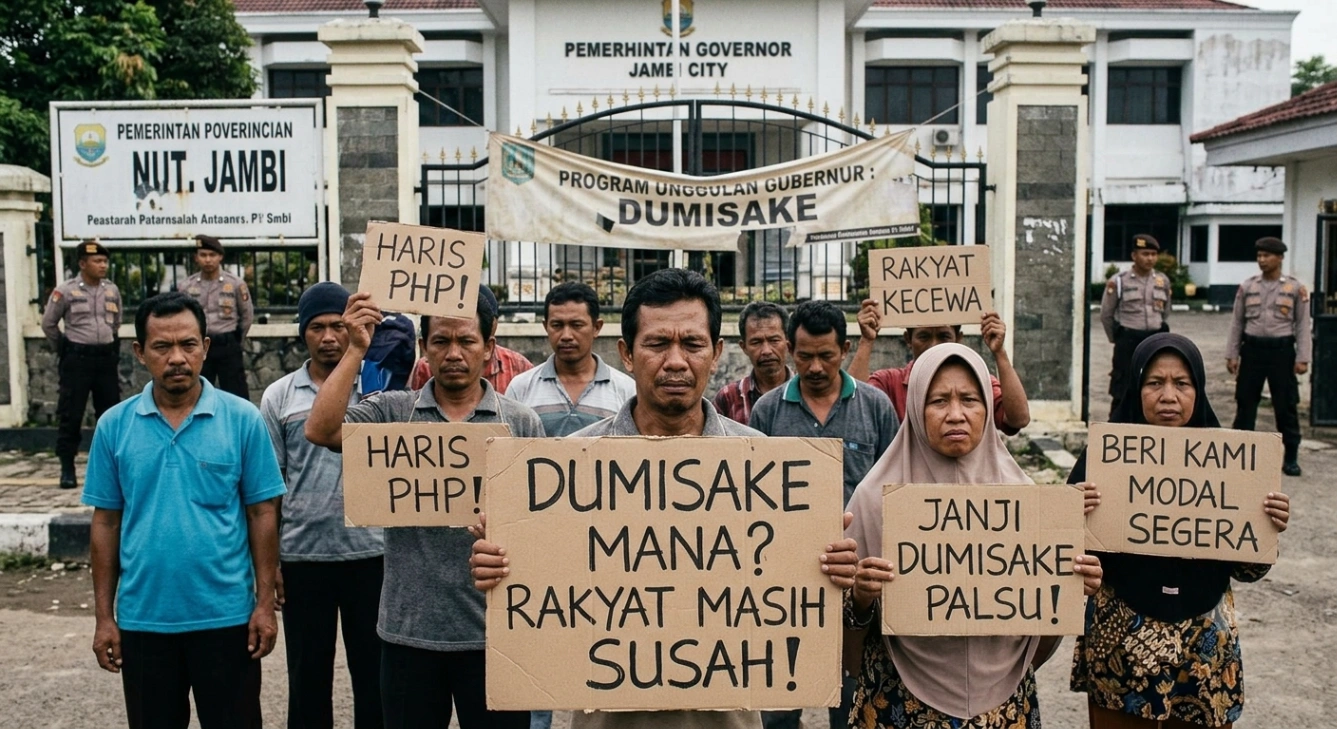 PEMERHINTAN GOVERNOR
JAMBI CITY
PEMERINTAN POVERINCIAN
NUT. JAMBI
Peastarah Patarnsalah Antaanrs. P
Smbi
PROGRAM UNGGULAN GUBERNUR :
DUMISAKE
HARIS
PHP!
RAKYAT
KECEWA
HARIS
PHP!
DUMISAKE
MANA?
RAKYAT MASIH
SUSAH!
JANJI
DUMISAKE
PALSU!
BERI KAMI
MODAL
SEGERA